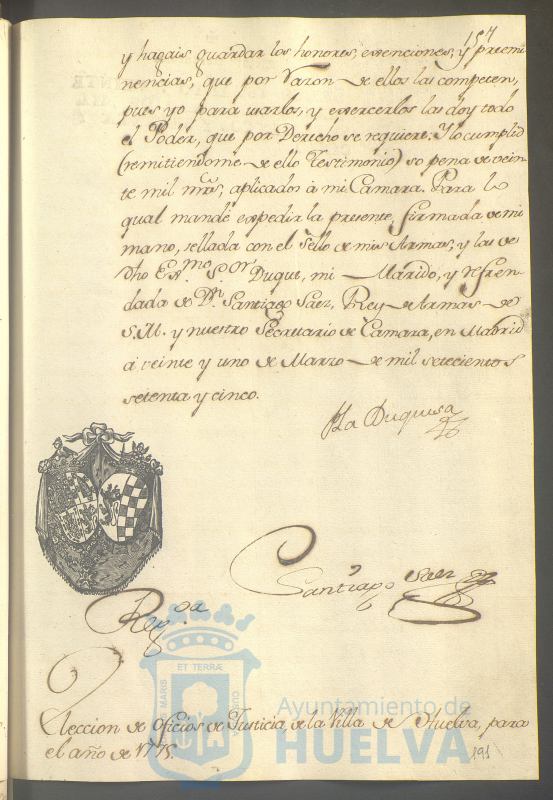 157
y hagais guardar los honores, exenciones, y preemi
nencias, que por razon de ellos las competen,
pues yo para usarlos, y exercerlos las doy todo
el Poder, que por Derecho se requiere: Y lo cumplid
(remitiendome de ello Testimonio) so pena de vein
te mil mrs, aplicados à mi Camara. Para lo
qual mandè expedir la presente, firmada de mi
mano, sellada con el sello de mis Armas, y las de
dho Exmo Sor Duque, mi Marido, y refren
dada de Dn Santiago Saez, Rey de Armas de
S.M. y nuestro Secretario de Camara, en Madrid
à veinte y uno de Marzo de mil setecientos
setenta y cinco.
La Duquesa
Santiago Saez
Regda
Eleccion de Oficios de Justicia, de la Villa de Huelva, para
el año de 1775.
191
PORTUS MARIS ET TERRÆ CUSTODIA
Ayuntamiento de
HUELVA